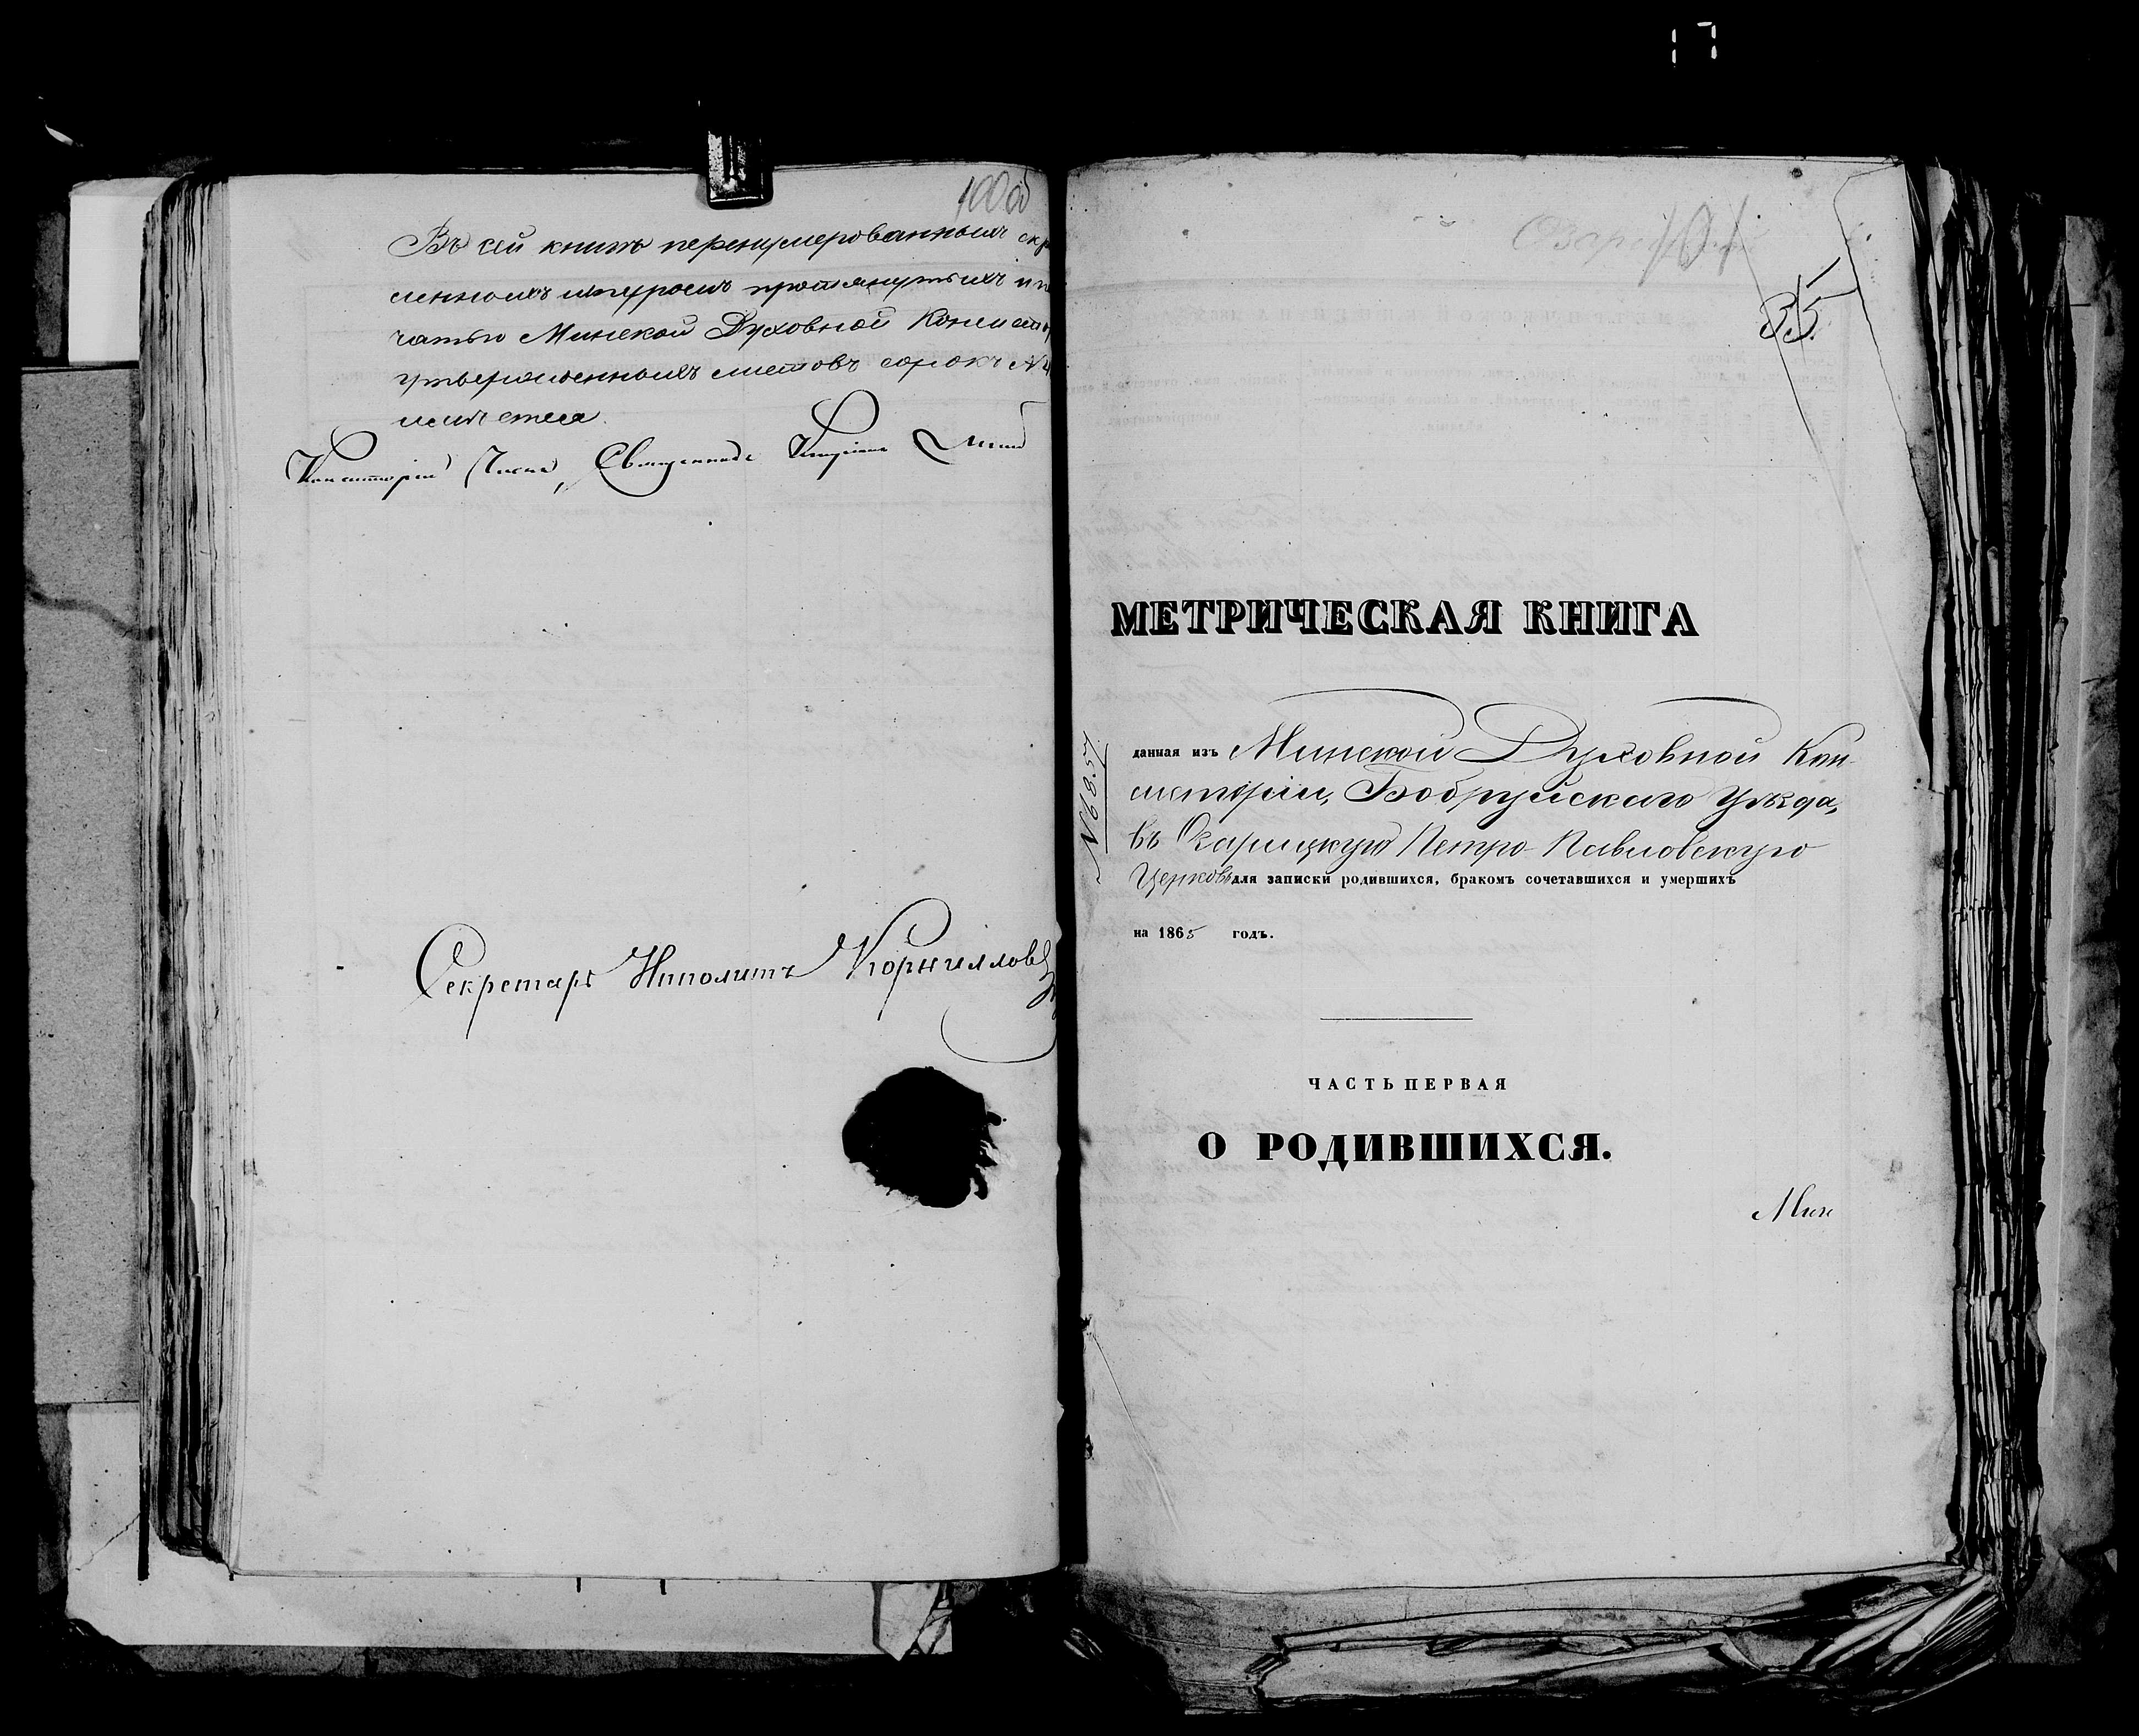 100об
Въ сей книгѣ перенумерованныхъ скр
ленныхъ шнуромъ протянутыхъ и п
чатью Минской Духовной Консисто
утвержденныхъ листовъ сорокъ
Консисторіи Членъ, Священникъ
Секретарь Ипполитъ Корнилловъ
101
35
МЕТРИЧЕСКАЯ КНИГА
данная изъ Минской Духовной Кон-
систоріи, Бобруйскаго Уѣзда,
въ Озарицкую Петро-Павловскую
Церковь для записки родившихся, бракомъ сочетавшихся и умершихъ
на 1865 годъ.
ЧАСТЬ ПЕРВАЯ
О РОДИВШИХСЯ.
Мин